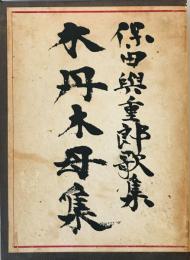 保田與重郎歌集
木丹木母集